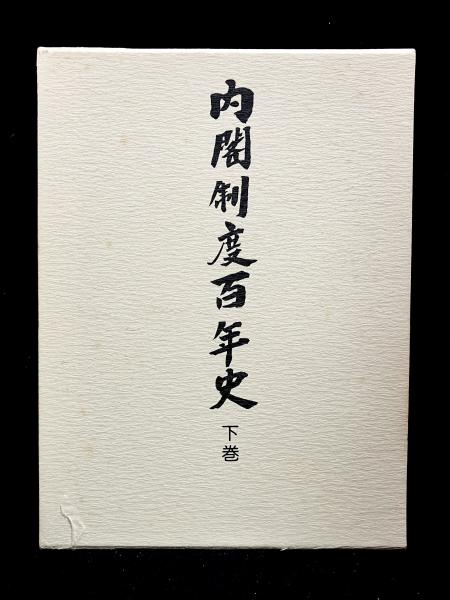 内閣制度百年史
下巻